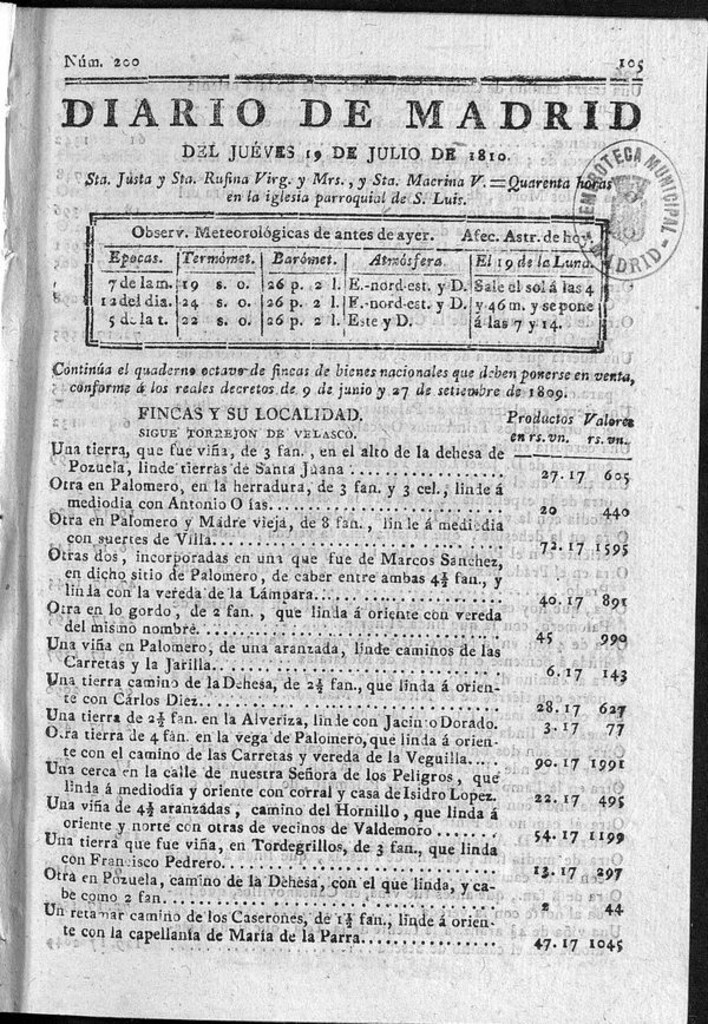 Núm. 200 105
DIARIO DE MADRID
DEL JUÉVES 19 DE JULIO DE 1810.
Sta. Justa y Sta. Rufina Virg. y Mrs., y Sta. Macrina V. = Quarenta horas
en la iglesia parroquial de S. Luis.
HEMEROTECA MUNICIPAL
MADRID
Observ. Meteorológicas de antes de ayer. Afec. Astr. de hoy.
Epocas. Termómet. Barómet. Atmósfera. El 19 de la Luna.
7 de la m. 19 s. o. 26 p. 2 l. E.-nord-est. y D. Sale el sol á las 4
12 del dia. 24 s. o. 26 p. 2 l. E.-nord-est. y D. y 46 m. y se pone
5 de la t. 22 s. o. 26 p. 2 l. Este y D. á las 7 y 14.
Continúa el quaderno octavo de fincas de bienes nacionales que deben ponerse en venta,
conforme á los reales decretos de 9 de junio y 27 de setiembre de 1809.
FINCAS Y SU LOCALIDAD. Productos Valores
SIGUE TORREJON DE VELASCO. en rs. vn. rs. vn.
Una tierra, que fue viña, de 3 fan., en el alto de la dehesa de
Pozuela, linde tierras de Santa Juana : ................ 27. 17 605
Otra en Palomero, en la herradura, de 3 fan. y 3 cel., linde á
mediodia con Antonio O ías........................ 20 440
Otra en Palomero y Madre vieja, de 8 fan., linde á mediodia
con suertes de Villa............................ 72. 17 1595
Otras dos, incorporadas en una que fue de Marcos Sanchez,
en dicho sitio de Palomero, de caber entre ambas 4½ fan., y
linda con la vereda de la Lámpara.................. 40. 17 891
Otra en lo gordo, de 2 fan., que linda á oriente con vereda
del mismo nombre............................... 45 990
Una viña en Palomero, de una aranzada, linde caminos de las
Carretas y la Jarilla............................ 6. 17 143
Una tierra camino de la Dehesa, de 2½ fan., que linda á orien-
te con Cárlos Diez.............................. 28. 17 627
Una tierra de 2½ fan. en la Alveriza, linde con Jacinto Dorado. 3. 17 77
Otra tierra de 4 fan. en la vega de Palomero, que linda á orien-
te con el camino de las Carretas y vereda de la Veguilla.... 90. 17 1991
Una cerca en la calle de nuestra Señora de los Peligros, que
linda á mediodía y oriente con corral y casa de Isidro Lopez. 22. 17 495
Una viña de 4½ aranzadas, camino del Hornillo, que linda á
oriente y norte con otras de vecinos de Valdemoro ...... 54. 17 1199
Una tierra que fue viña, en Tordegrillos, de 3 fan., que linda
con Francisco Pedrero........................... 13. 17 297
Otra en Pozuela, camino de la Dehesa, con el que linda, y ca-
be como 2 fan................................ 2 44
Un retamar camino de los Caserones, de 1½ fan., linde á orien-
te con la capellanía de María de la Parra............... 47. 17 1045